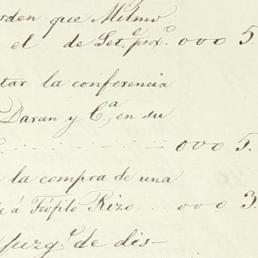 orden que Milmo
el de Set.e pxo. 000 5.
tar la conferencia
Daran y C.a, en su
000 5.
la compra de una
é á Teófilo Rizo 000 3.
Juzg.o de dis-